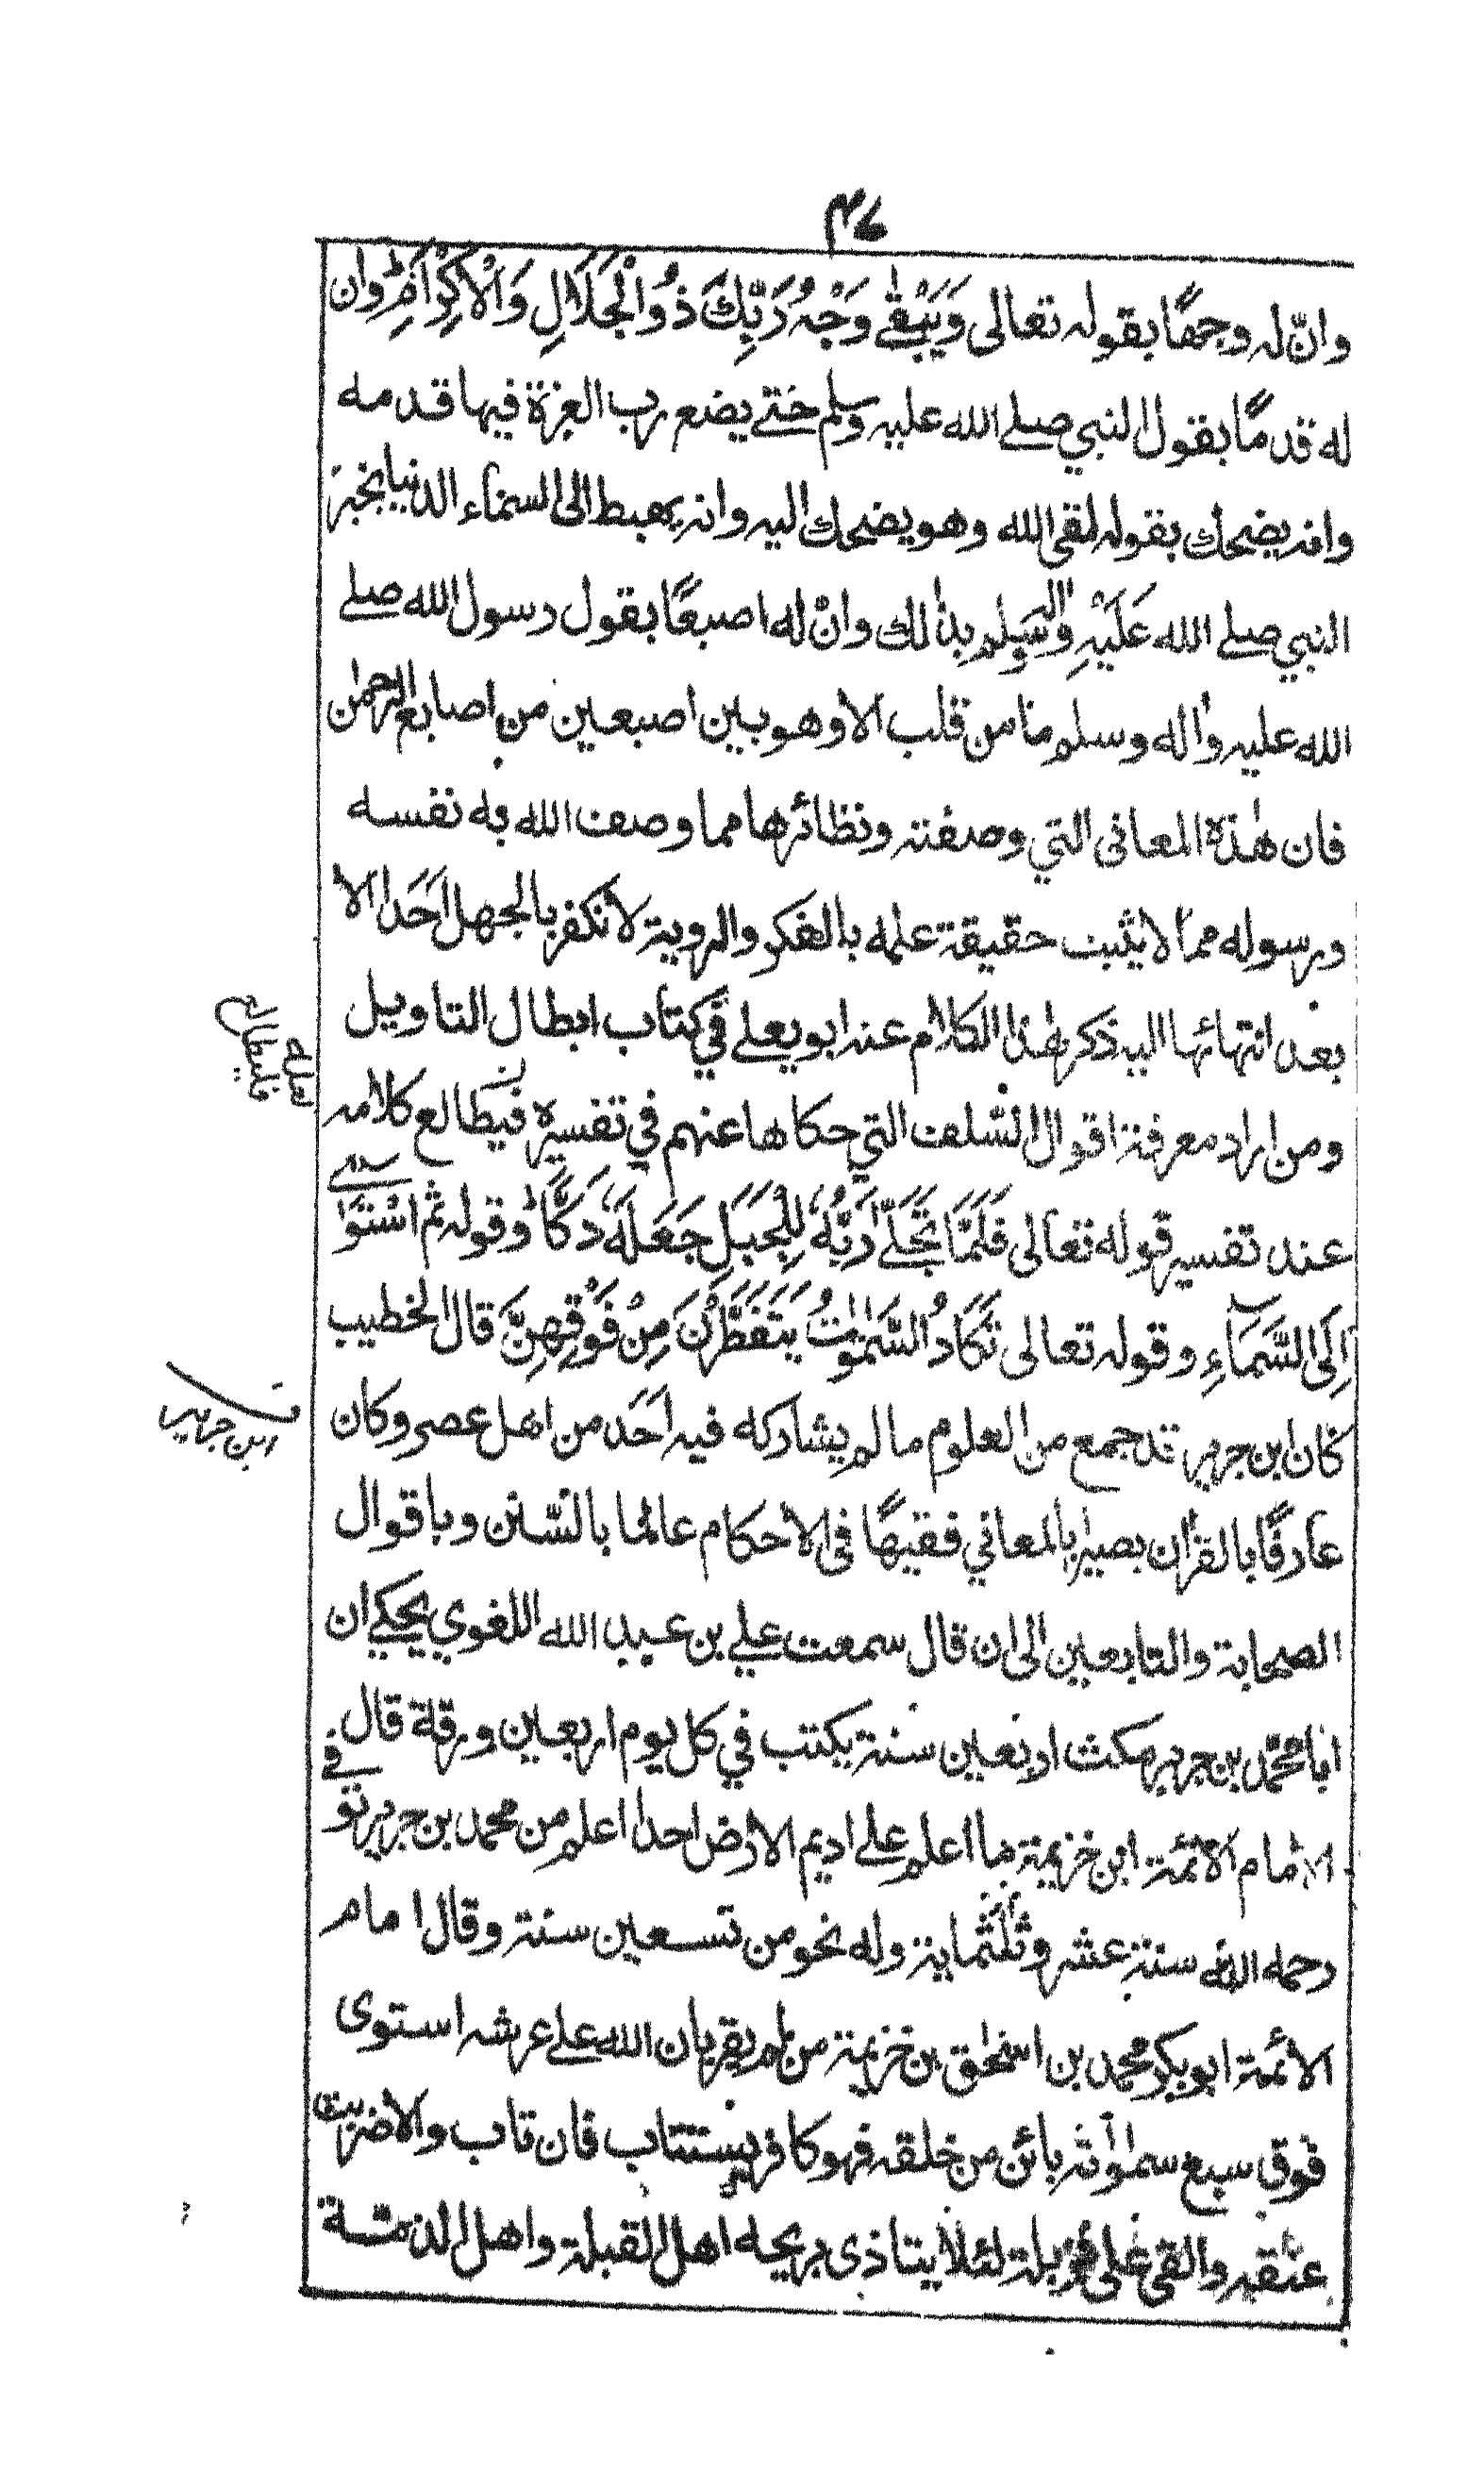 ۴۷
وانّ له وجهًا بقوله تعالى وَيَبْقٰى وَجْهُ رَبِّكَ ذُو الْجَلَالِ وَالْاِكْرَامِ وان
له قدمًا بقول النبي صلے الله عليه وسلم حتے يضع رب العزة فيها قدمه
وانه يضحك بقوله لقى الله وهو يضحك اليه وانه يهبط الى السماء الدنيا بخبر
النبي صلے الله عَلَيْهِ واله وَسلم بذلك وانْ له اصبعًا بقول رسول الله صلے
الله عليه واٰله وسلم ما من قلب الا وهو بين اصبعين من اصابع الرحمٰن
فان هٰذه المعانى التي وصفته ونظائرها مما وصف الله به نفسه
ورسوله مما لا يثبت حقيقة علمه بالفكر والروية لا نكفر بالجهل اَحَدا الا
بعد انتهائها اليه ذكر هٰذا الكلام عنه ابو يعلے في كتاب ابطال التاويل
ومن اراد معرفة اقوال السلف التي حكاها عنهم في تفسيره فليطالع كلامه
عند تفسير قوله تعالى فَلَمَّا تَجَلّٰے رَبُّهٗ لِلْجَبَلِ جَعَلَهٗ دَكًّا وقوله ثم اسْتَوٰے
اِلَى السَّمَآءِ وقوله تعالى تَكَادُ السَّمٰوٰتُ يَتَفَطَّرْنَ مِنْ فَوْقِهِنَّ قال الخطيب
كان ابن جرير قد جمع من العلوم ما لم يشاركه فيه اَحَد من اهل عصره وكان
عارفًا بالقراٰن بصيرا بالمعاني فقيهًا فى الاحكام عالما بالسّنن وباقوال
الصحابة والتابعين الى ان قال سمعت علي بن عبيد الله اللغوي يحكے ان
ابا محمّد بن جرير مكث اربعين سنة يكتب في كل يوم اربعين ورقة قال
الامام الائمة ابن خزيمة ما اعلم علے اديم الارض احدا اعلم من محمد بن جرير توفے
رحمه الله سنة عشر وثلٰثماية وله نحو من تسعين سنة وقال امام
الائمة ابو بكر محمد بن اسحٰق بن خزيمة من لم يقر بان الله علے عرشه استوى
فوق سبع سمٰوٰته بائن من خلقه فهو كافر يستتاب فان تاب والا ضربت
عنقه والقى على مزبلة لئلا يتاذى بريحه اهل القبلة واهل الذمة
ابن جرير